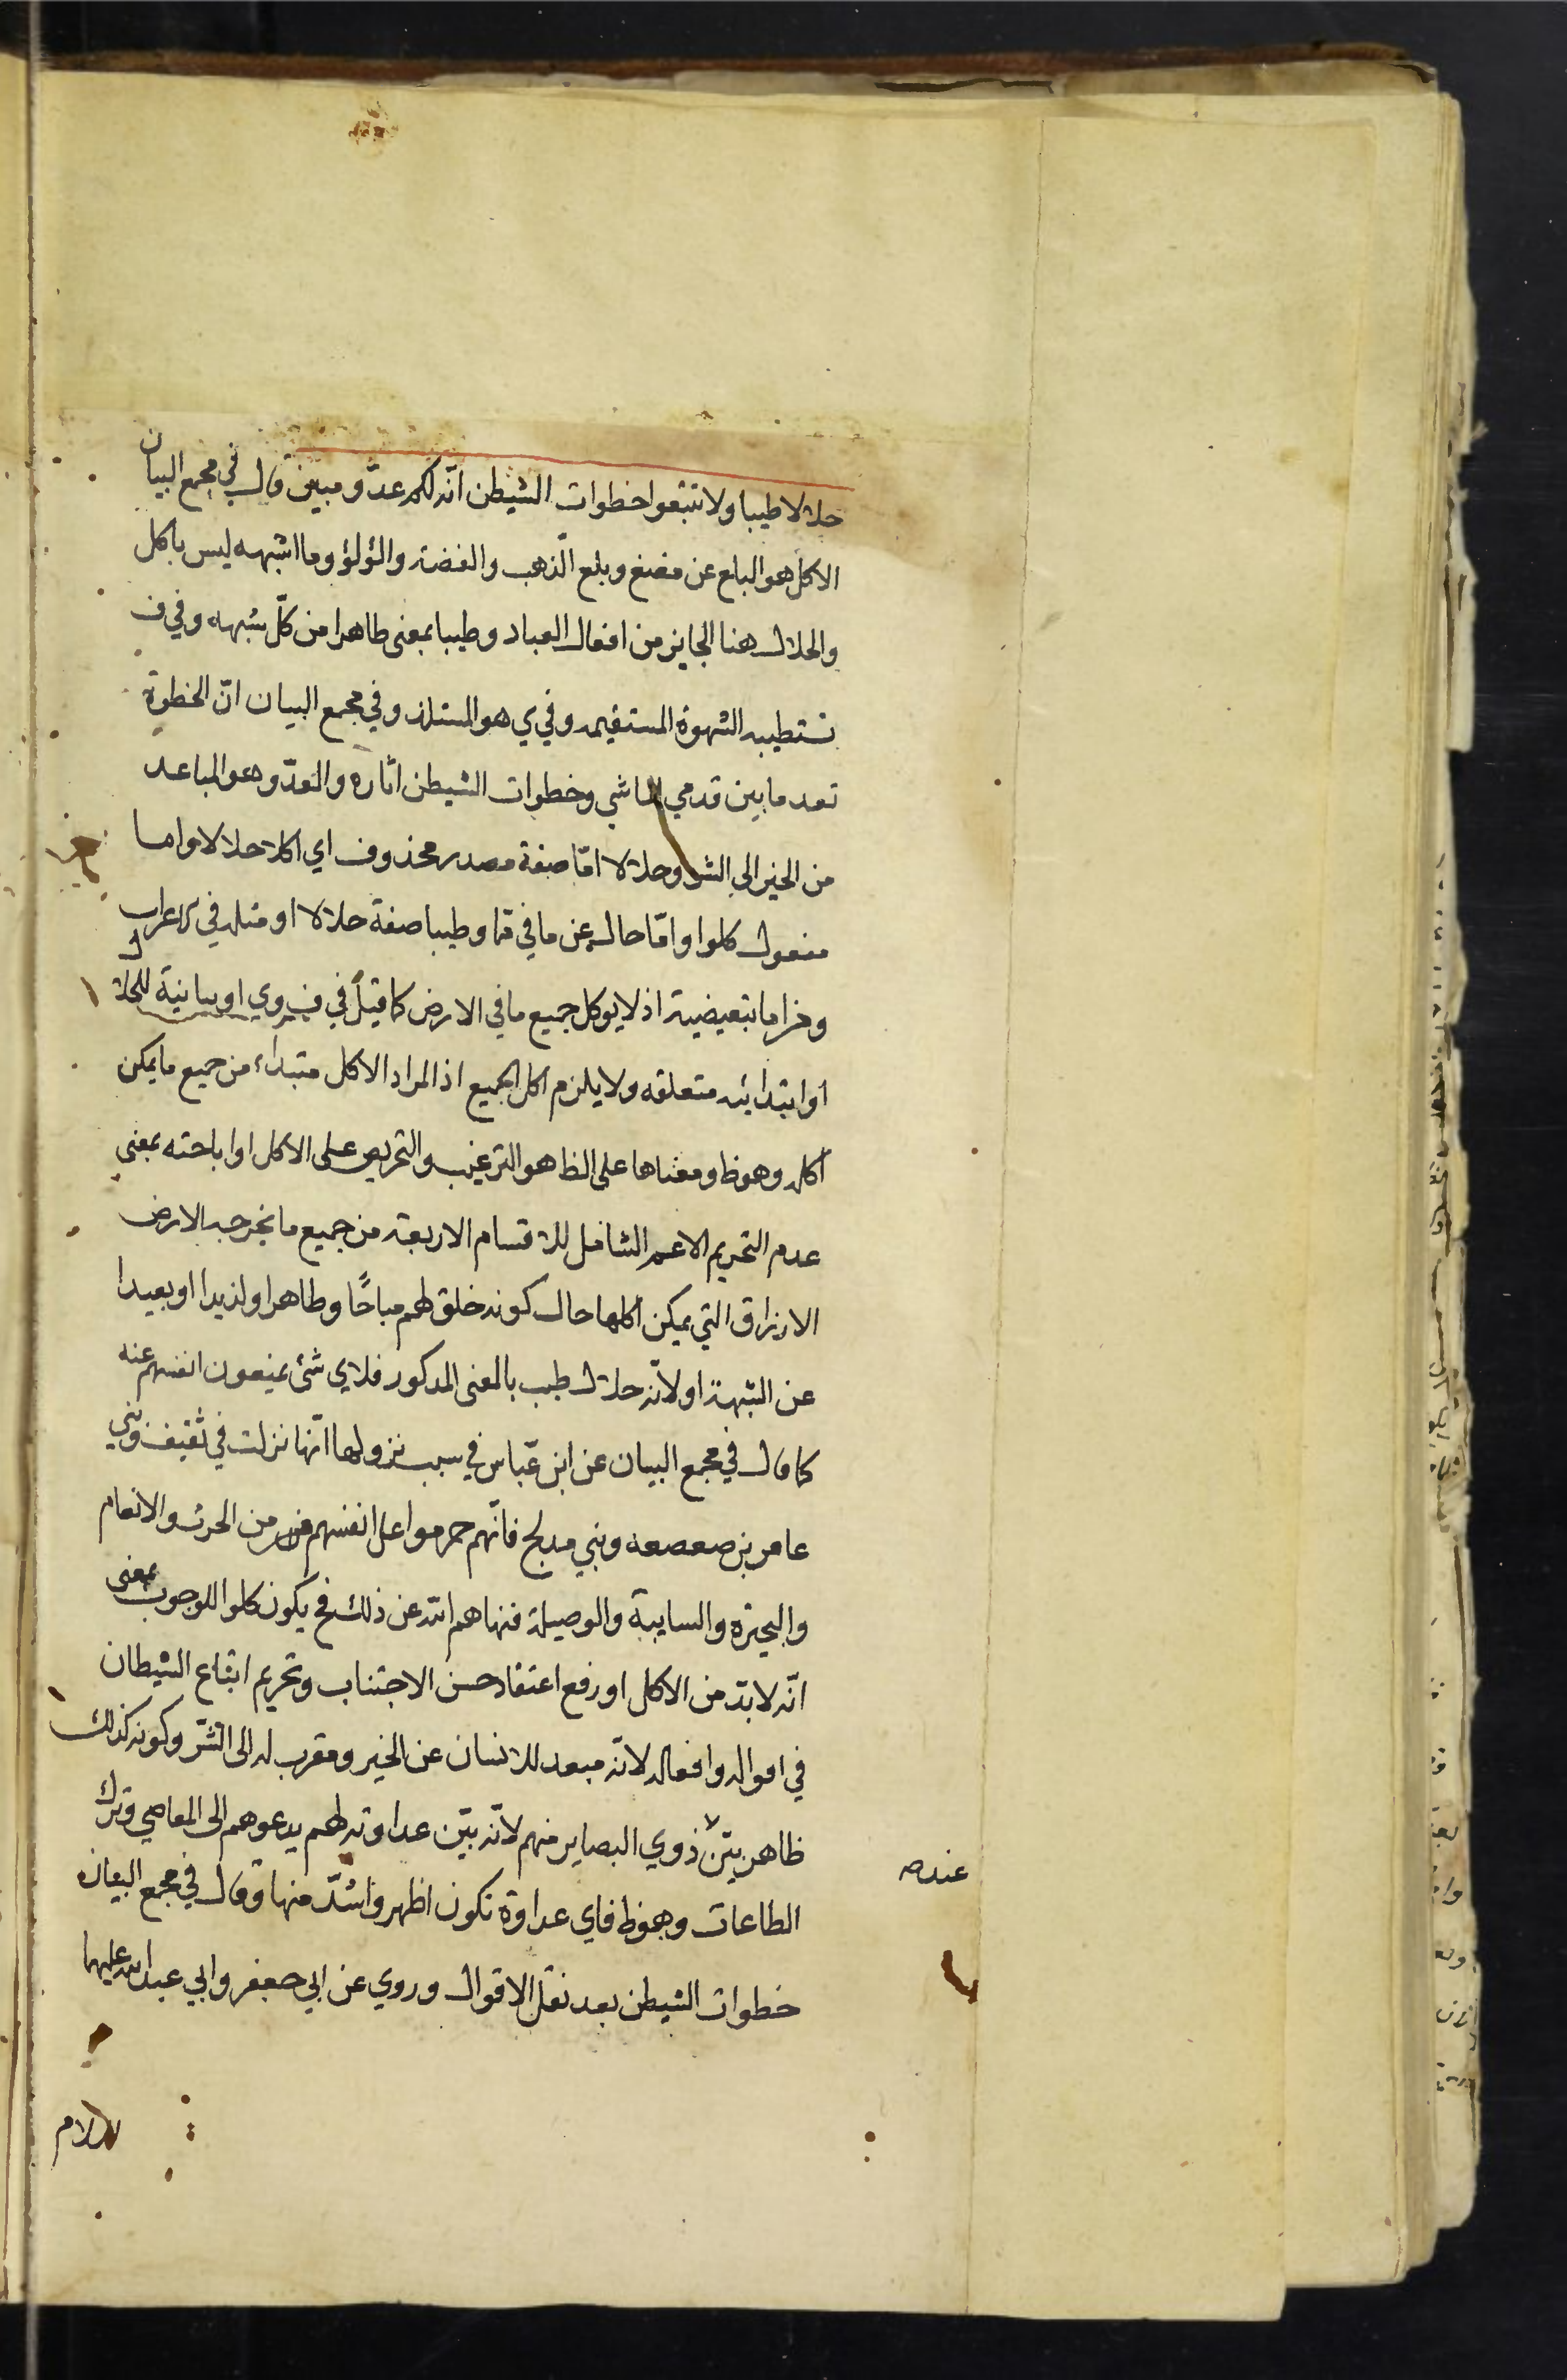 حلالا طيبا ولا تتبعوا خطوات الشيطن انّه لكم عدّو مبين قال في مجمع البيان
الاكل هو البلع عن مضغ وبلع الذّهب والفضة والؤلؤ وما اشبهه ليس باكل
والحلال هنا الجايز من افعال العباد وطيبا بمعنى طاهرا من كلّ شبهه وفي ف
تستطيبه الشهوة المستقيمه وفي ي هو المستلذ وفي مجمع البيان انّ الخطوة
تعد ما بين قدمي الماشي وخطوات الشيطن اثاره والعدّو هو المباعد
من الخير الى الشر وحلالا امّا صفة مصدر محذوف اي اكلا حلالا واما
مفعول كلوا وامّا حال عن ما في مما وطيبا صفة حلالا او مثله في الاعراب
ومن اما تبعيضية اذ لا يوكل جميع ما في الارض كما قيل في ف وي او بيانية للحلال
او ابتدائيه متعلقه ولا يلزم اكل الجميع اذ المراد الاكل مبتداء من جميع ما يمكن
اكله وهو ظ ومعناها على الظ هو الترغيب والتحريص على الاكل او اباحته بمعنى
عدم التحريم الاعم الشامل للاقسام الاربعة من جميع ما تخرجه الارض
الارزاق التي يمكن اكلها حال كونه خلق لهم مباحًا وطاهرا ولذيذا او بعيدا
عن الشبهة او لانّه حلال طيب بالمعنى المذكور فلاي شئ يمنعون انفسهم عنه
كما قال في مجمع البيان عن ابن عبّاس في سبب نزولها انّها نزلت في ثقيف وبني
عامر بن صعصعه وبني مدلج فانّهم حرموا على انفسهم من الحرث والانعام
والبحيرة والسايبة والوصيلة فنهاهم الله عن ذلك فح يكون كلوا للوجوب بمعنى
انّه لا بدّ من الاكل او رفع اعتقاد حسن الاجتناب وتحريم اتباع الشيطان
في اقواله وافعاله لانّه مبعد للانسان عن الخير ومقرب له الى الشّر وكونه كذلك
ظاهر بيّن ذوي البصاير منهم لانّه بيّن عداوته لهم يدعوهم الى المعاصي وترك
عنده
الطاعات وهو ظ فاي عداوة تكون اظهر واشدّ منها وقال في مجمع البيان
خطوات الشيطن بعد نقل الاقوال وروي عن ابي جعفر وابي عبد الله عليهما
السلام